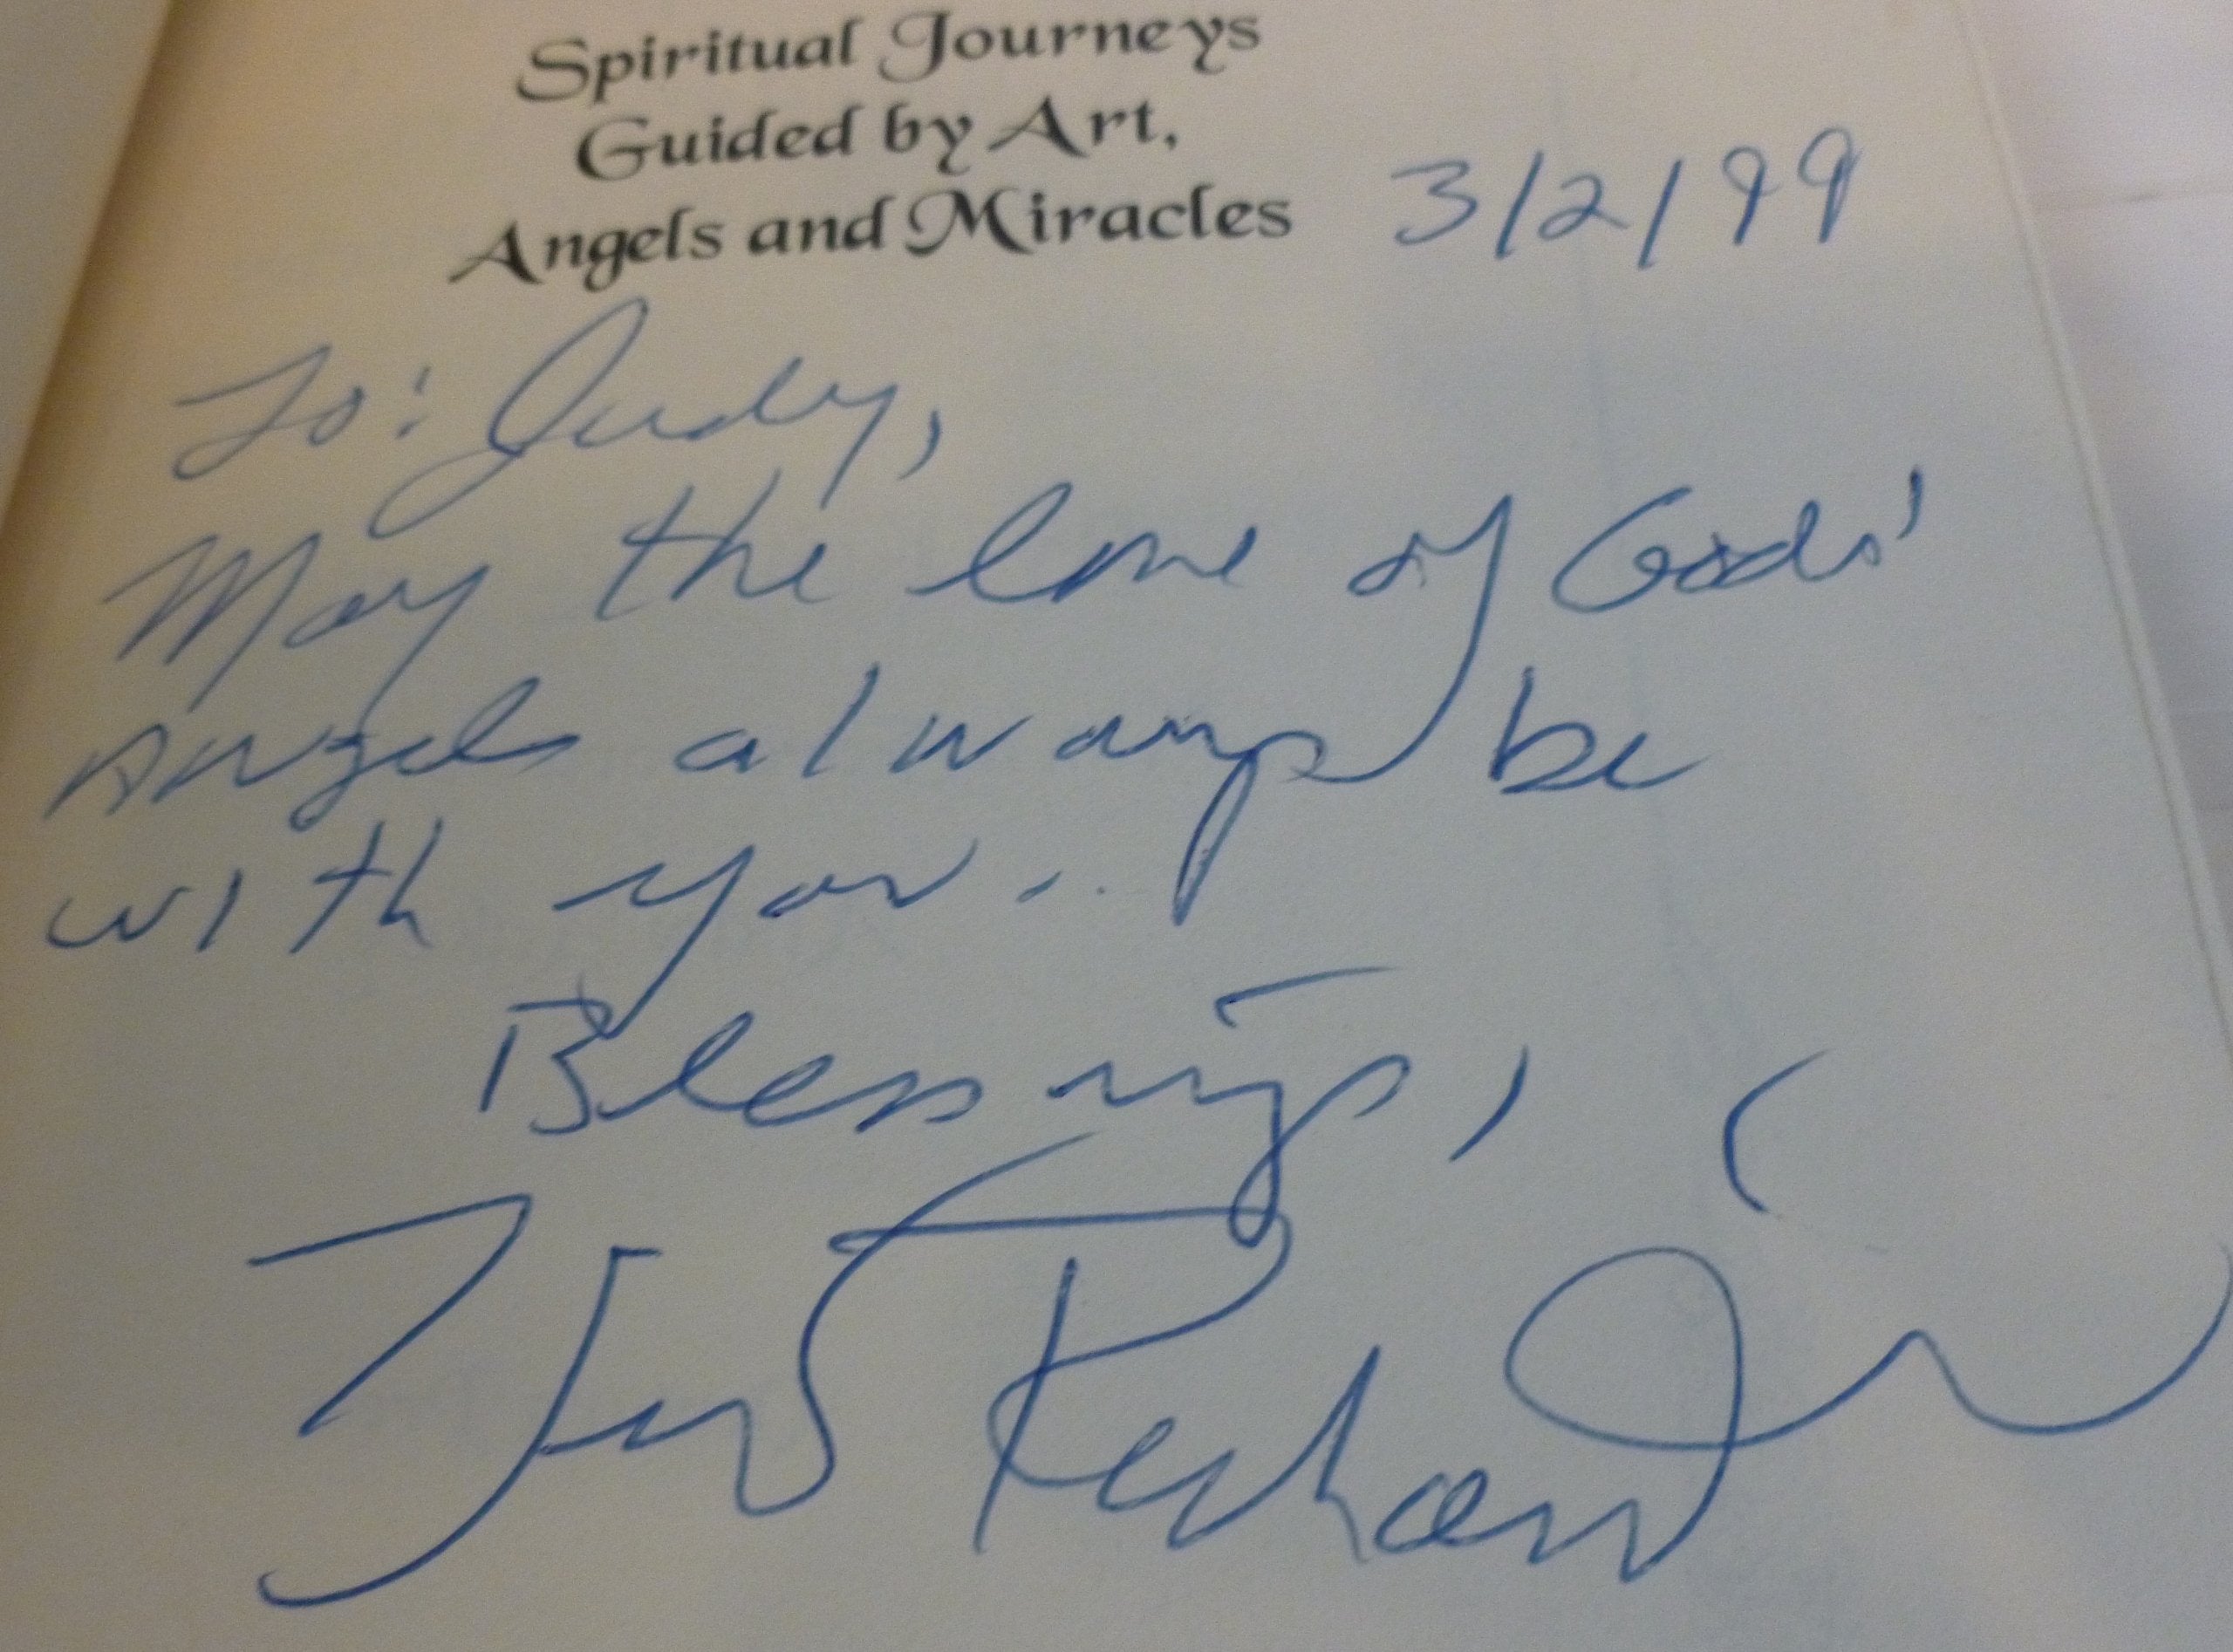 Spiritual Journeys
Guided by Art,
Angels and Miracles
3/2/99
To: Judy,
May the love of Gods'
Angels always be
with you...
Blessings,
Richard